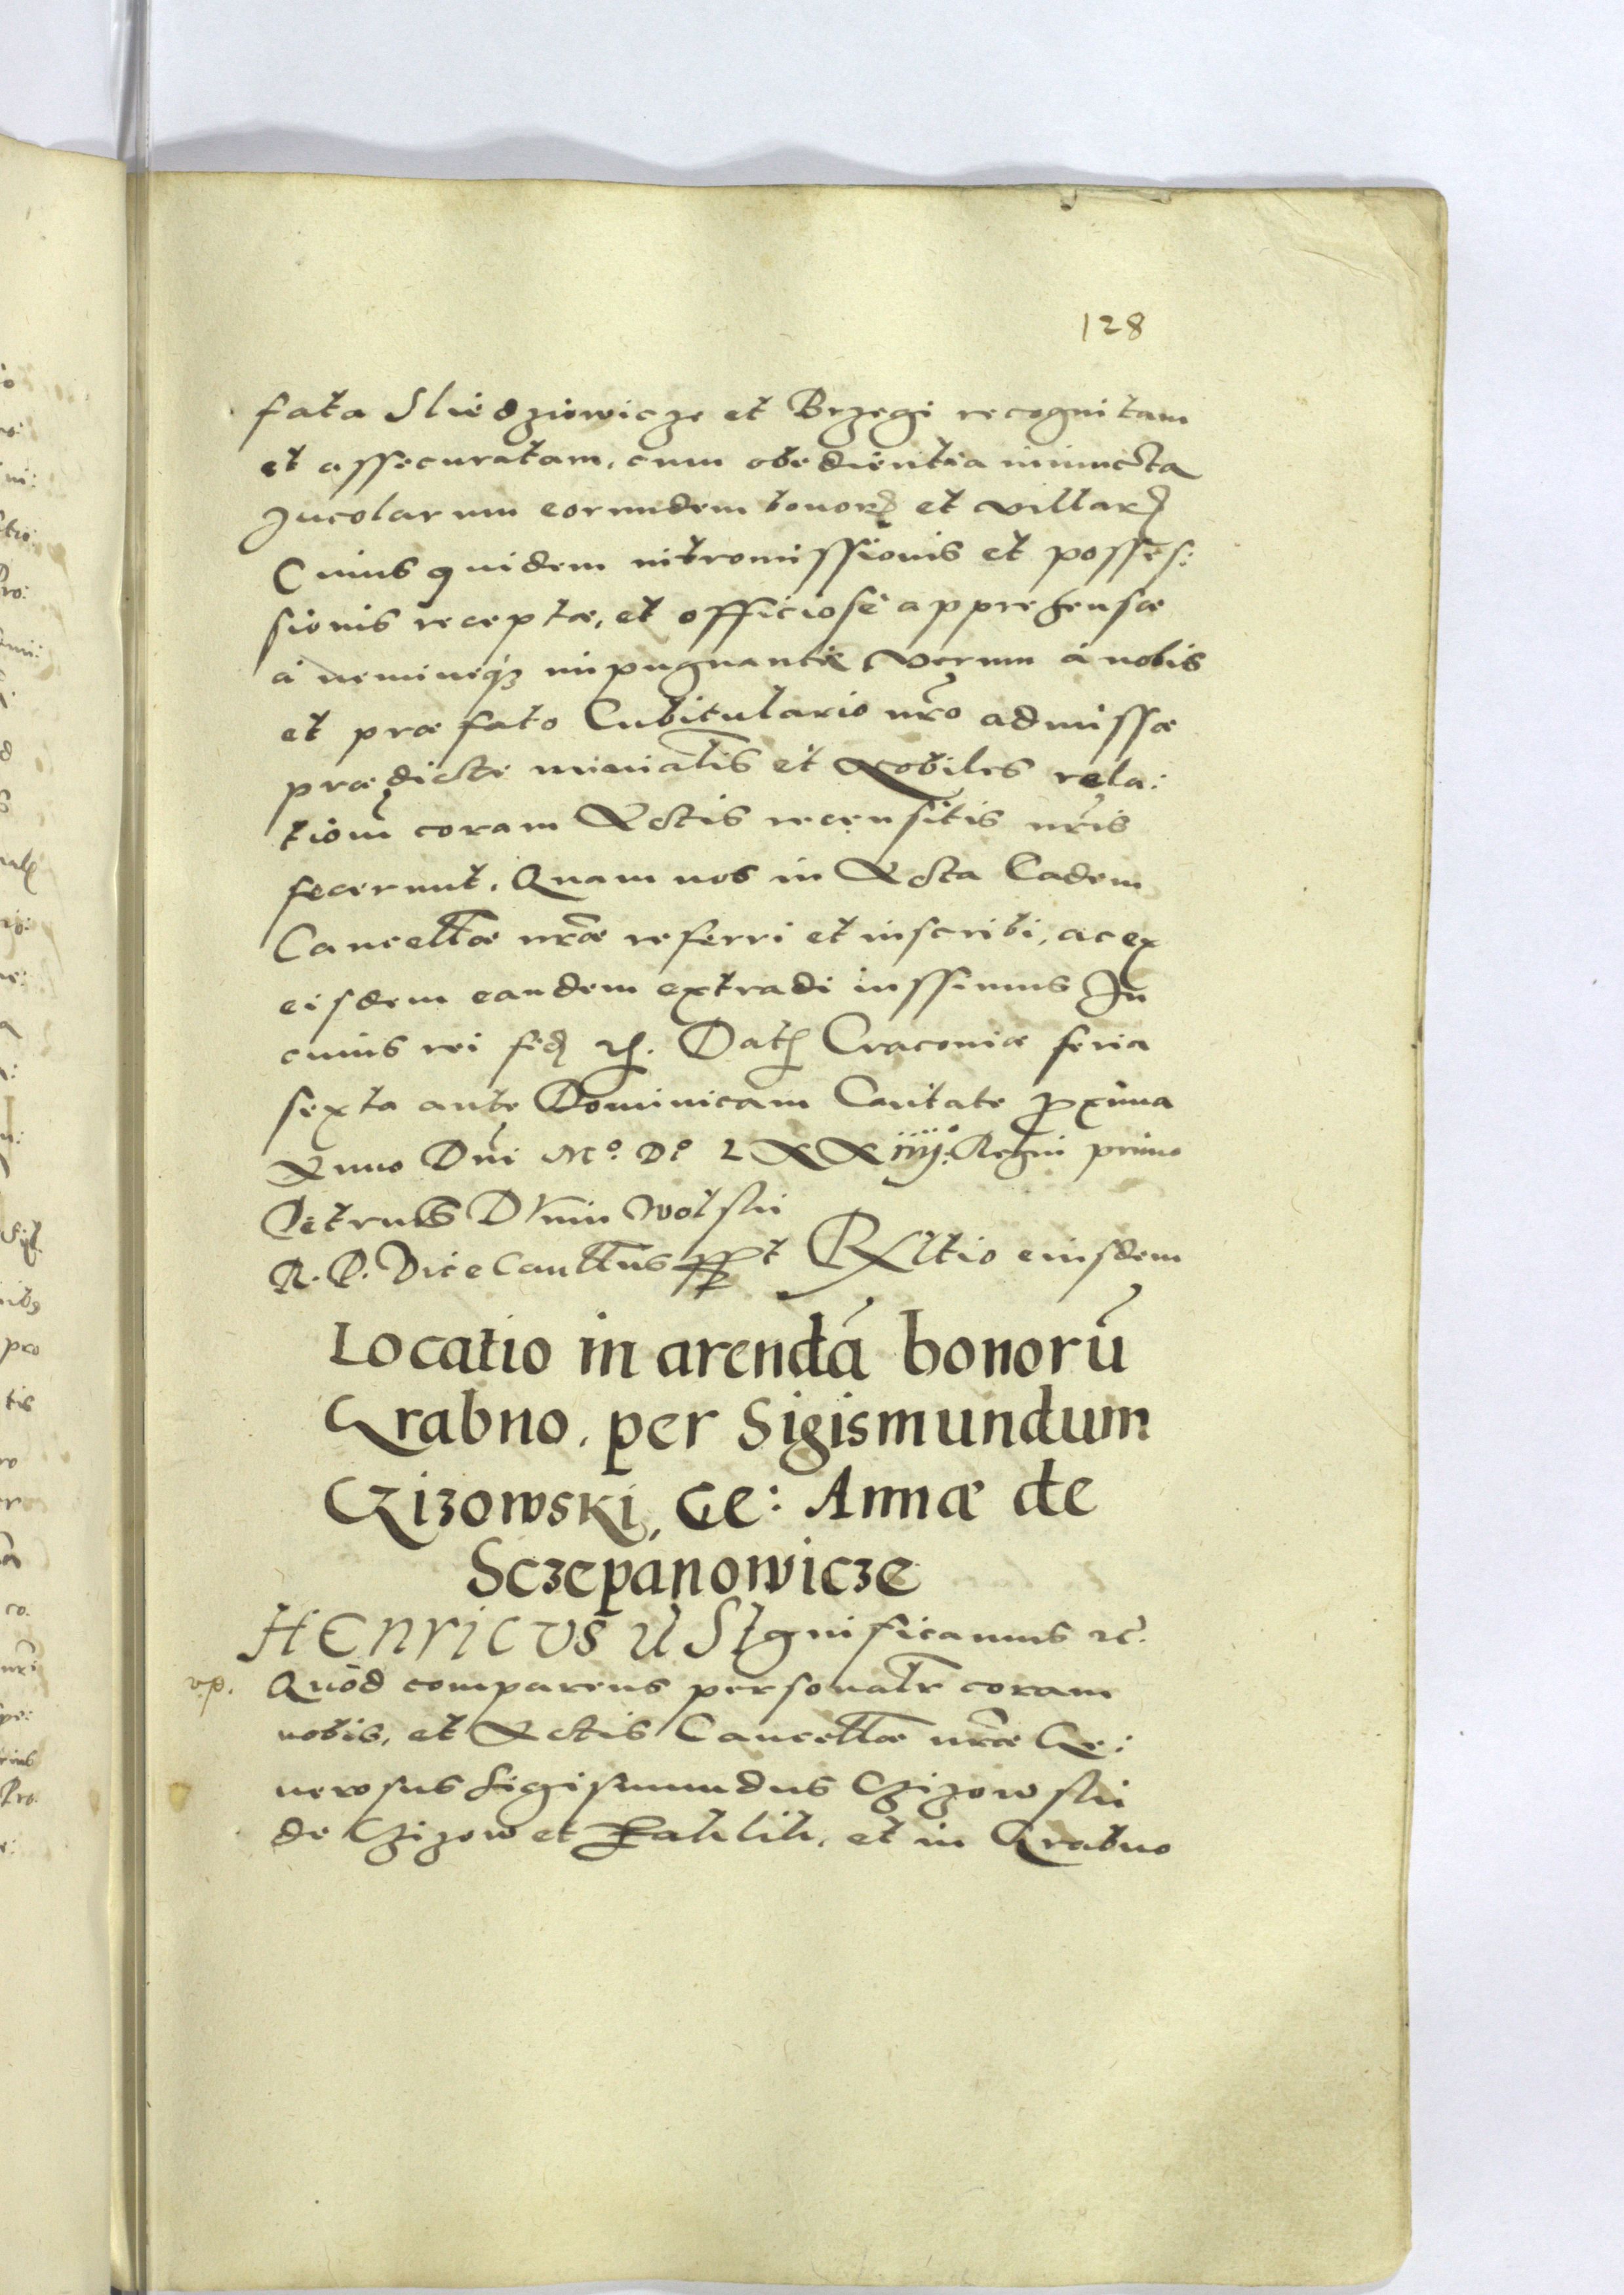 128
fata Sliedziowicze et Brzegi recognitam
et assecuratam, cum obedientia iniuncta
Incolarum eorundem bonorꝝ et villarꝝ
Cuius quidem intromissionis et posses:
sionis receptæ, et officiose apprehensæ
à nemineqꝫ impugnantæ verum à nobis
et præfato Cubiculario nr̃o admissæ
prædicti minialis et Nobiles rela:
tiom̃ coram Actis recensitis nr̃is
fecerunt. Quam nos in Acta Eadem
Cancellæ nr̃æ referri et inscribi, ac ex
eisdem eandem extradi iussimus In
cuius rei fidꝫ ꝛc. Datꝫ Cracoviæ feria
sexta ante Dominicam Cantate proxima
Anno Dni Mº. Dº LXXiiijº. Regni primo
Petrus Dunin Wolski
R. P. Vice Cancllrius sspt Rltio eiusdem
Locatio in arendã bonorũ
Grabno. per Sigismundum
Czizowski, Ge: Annæ de
Sczepanowicze
HENRICVS ꝛc SIgnificamus ꝛc.
v.p. Quòd comparens personalr̃ coram
nobis, et Actis Cancellæ nr̃æ Ge:
nerosus Sigismundus Czizowski
de Czizow et et in Grabno